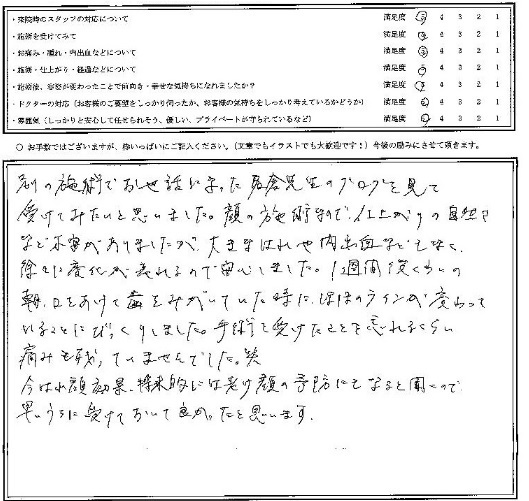 ・来院時のスタッフの対応について 満足度 5 4 3 2 1
・施術を受けてみて 満足度 5 4 3 2 1
・お痛み・腫れ・内出血などについて 満足度 5 4 3 2 1
・施術・仕上がり・経過などについて 満足度 5 4 3 2 1
・施術後、容姿が変わったことで前向き・幸せな気持ちになれましたか？ 満足度 5 4 3 2 1
・ドクターの対応（お客様のご要望をしっかり伺ったか、お客様の気持ちをしっかり考えているかどうか） 満足度 5 4 3 2 1
・雰囲気（しっかりと安心して任せられそう、優しい、プライベートが守られているなど） 満足度 5 4 3 2 1
○ お手数ではございますが、枠いっぱいにご記入ください。（文章でもイラストでも大歓迎です！）今後の励みにさせて頂きます。
別の施術でお世話になった 先生のブログを見て
受けてみたいと思いました。顔の施術なので、仕上がりの自然さ
など不安がありましたが、大きなはれや内出血などもなく、
徐々に変化が表れるので安心しました。1週間後くらいの
朝、口をあけて歯をみがいていた時に、ほほのラインが変わって
いることにびっくりしました。手術を受けたことを忘れるくらい
痛みも残っていませんでした。笑
今は小顔効果、将来的には老け顔の予防にもなると聞いたので
早いうちに受けておいて良かったと思います。